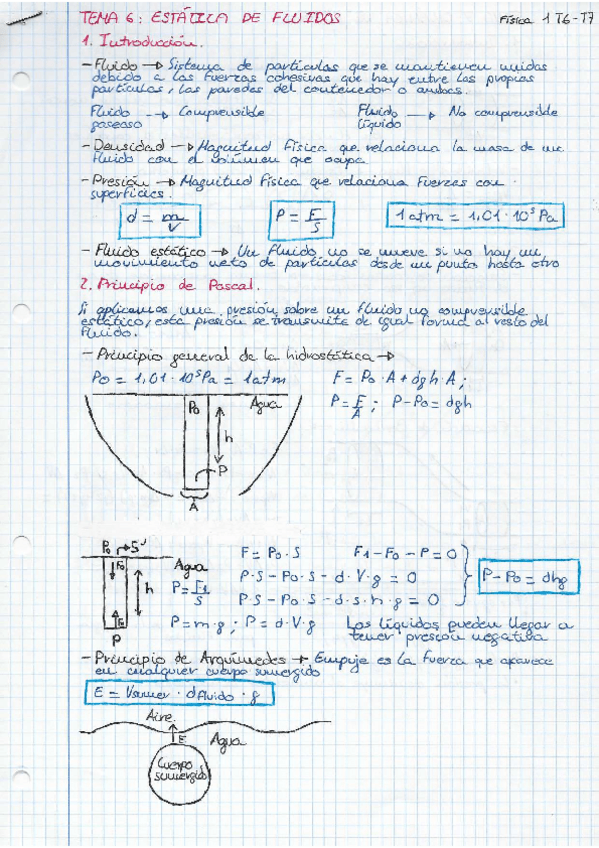 TEMA 6: ESTÁTICA DE FLUIDOS
Física 1 T6-T7
1. Introducción.
- Fluido → Sistema de partículas que se mantienen unidas
debido a las fuerzas cohesivas que hay entre las propias
partículas, las paredes del contenedor o ambas.
Fluido gaseoso → Comprensible
Fluido líquido → No comprensible
- Densidad → Magnitud física que relaciona la masa de un
fluido con el volúmen que ocupa
- Presión → Magnitud física que relaciona fuerzas con
superficies.
d = m/V
P = F/S
1 atm = 1,01 · 10⁵ Pa
- Fluido estático → Un fluido no se mueve si no hay un
movimiento neto de partículas desde un punto hasta otro
2. Principio de Pascal.
Si aplicamos una presión sobre un fluido no comprensible
estático, esta presión se transmite de igual forma al resto del
fluido.
- Principio general de la hidrostática →
P₀ = 1,01 · 10⁵ Pa = 1 atm
F = P₀ · A + dgh · A ;
P = F/A ; P - P₀ = dgh
P₀
Agua
h
P
A
P₀ → S
F₀
Agua
h
E
P
F = P₀ · S
F₁ - F₀ - P = 0
P = F₁/S
P · S - P₀ · S - d · V · g = 0
P · S - P₀ · S - d · s · h · g = 0
P - P₀ = dhg
P = m · g ; P = d · V · g
Los líquidos pueden llegar a
tener presión negativa
- Principio de Arquímedes → Empuje es la fuerza que aparece
en cualquier cuerpo sumergido
E = Vsumer · dfluido · g
Aire
E
Agua
Cuerpo
sumergido